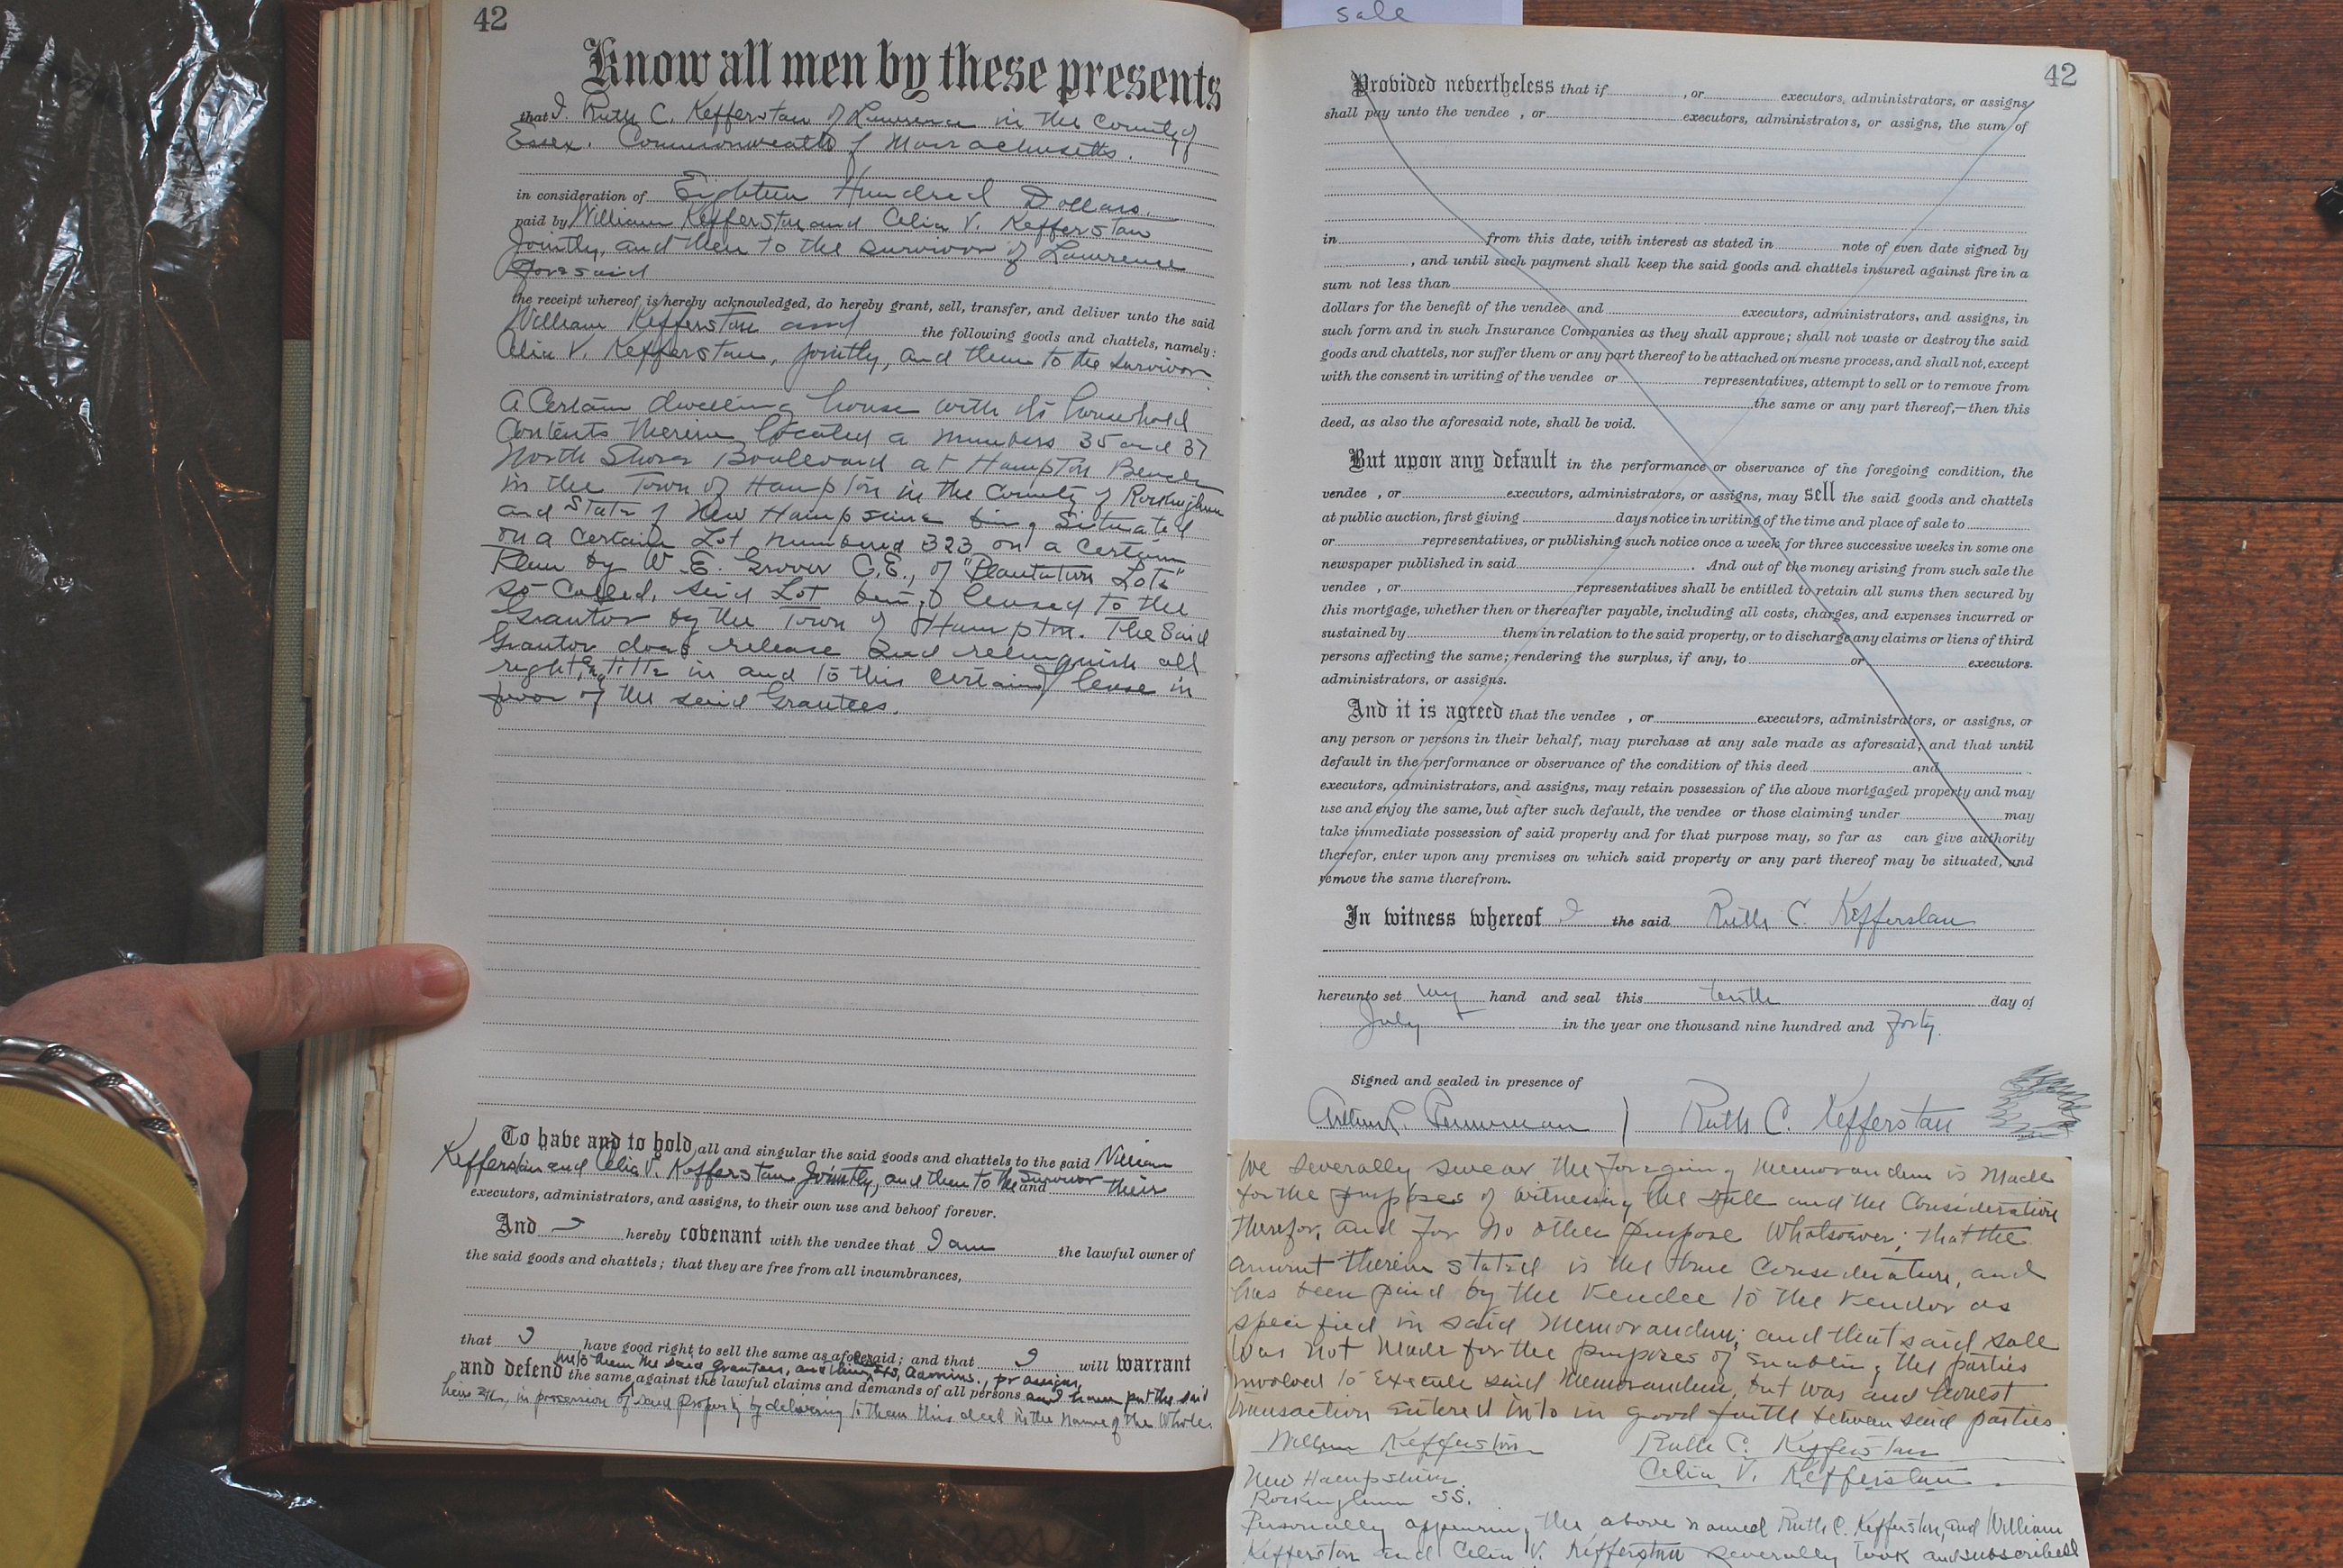 42
Know all men by these presents
that I Ruth C. Kefferstan of Lawrence in the County of
Essex. Commonwealth of Massachusetts.
in consideration of Eighteen Hundred Dollars.
paid by William Kefferstan and Celia V. Kefferstan
Jointly, and then to the survivor of Lawrence
aforesaid
the receipt whereof is hereby acknowledged, do hereby grant, sell, transfer, and deliver unto the said
William Kefferstan and the following goods and chattels, namely:
Celia V. Kefferstan, jointly, and then to the survivor
A Certain dwelling house with its household
Contents therein located a numbers 35 and 37
North Shore Boulevard at Hampton Beach
in the Town of Hampton in the County of Rockingham
and State of New Hampshire being situated
on a certain Lot numbered 323 on a certain
Plan by W. E. Grover C.E., of "Plantation Lots"
so-called, said Lot being leased to the
Grantor by the Town of Hampton. The said
Grantor does release and relinquish all
right, title in and to this certain lease in
favor of the said Grantees.
To have and to hold all and singular the said goods and chattels to the said William
Kefferstan and Celia V. Kefferstan Jointly, and then to the survivor and their
executors, administrators, and assigns, to their own use and behoof forever.
And I hereby covenant with the vendee that I am the lawful owner of
the said goods and chattels; that they are free from all incumbrances,
that I have good right to sell the same as aforesaid; and that I will warrant
and defend the same against the lawful claims and demands of all persons and have put the said
in possession of said property by delivering to them this deed in the name of the whole.
sale
42
Provided nevertheless that if , or executors, administrators, or assigns
shall pay unto the vendee , or executors, administrators, or assigns, the sum of
in from this date, with interest as stated in note of even date signed by
, and until such payment shall keep the said goods and chattels insured against fire in a
sum not less than
dollars for the benefit of the vendee and executors, administrators, and assigns, in
such form and in such Insurance Companies as they shall approve; shall not waste or destroy the said
goods and chattels, nor suffer them or any part thereof to be attached on mesne process, and shall not, except
with the consent in writing of the vendee or representatives, attempt to sell or to remove from
the same or any part thereof,—then this
deed, as also the aforesaid note, shall be void.
But upon any default in the performance or observance of the foregoing condition, the
vendee , or executors, administrators, or assigns, may sell the said goods and chattels
at public auction, first giving days notice in writing of the time and place of sale to
or representatives, or publishing such notice once a week for three successive weeks in some one
newspaper published in said . And out of the money arising from such sale the
vendee , or representatives shall be entitled to retain all sums then secured by
this mortgage, whether then or thereafter payable, including all costs, charges, and expenses incurred or
sustained by them in relation to the said property, or to discharge any claims or liens of third
persons affecting the same; rendering the surplus, if any, to or executors.
administrators, or assigns.
And it is agreed that the vendee , or executors, administrators, or assigns, or
any person or persons in their behalf, may purchase at any sale made as aforesaid; and that until
default in the performance or observance of the condition of this deed and
executors, administrators, and assigns, may retain possession of the above mortgaged property and may
use and enjoy the same, but after such default, the vendee or those claiming under may
take immediate possession of said property and for that purpose may, so far as can give authority
therefor, enter upon any premises on which said property or any part thereof may be situated, and
remove the same therefrom.
In witness whereof I the said Ruth C. Kefferstan
hereunto set my hand and seal this tenth day of
July in the year one thousand nine hundred and forty.
Signed and sealed in presence of
Ruth C. Kefferstan
We severally swear the foregoing memorandum is made
for the purposes of witnessing the sale and the Consideration
therefor, and for no other purpose whatsoever; that the
amount therein stated is the true Consideration, and
has been paid by the Vendee to the Vendor as
specified in said Memorandum; and that said sale
was not made for the purposes of enabling the parties
involved to execute said Memorandum, but was and honest
transaction entered into in good faith between said parties.
William Kefferstan Ruth C. Kefferstan
Celia V. Kefferstan
New Hampshire
Rockingham SS.
Personally appearing the above named Ruth C. Kefferstan, and William
Kefferstan and Celia V. Kefferstan severally took and subscribed